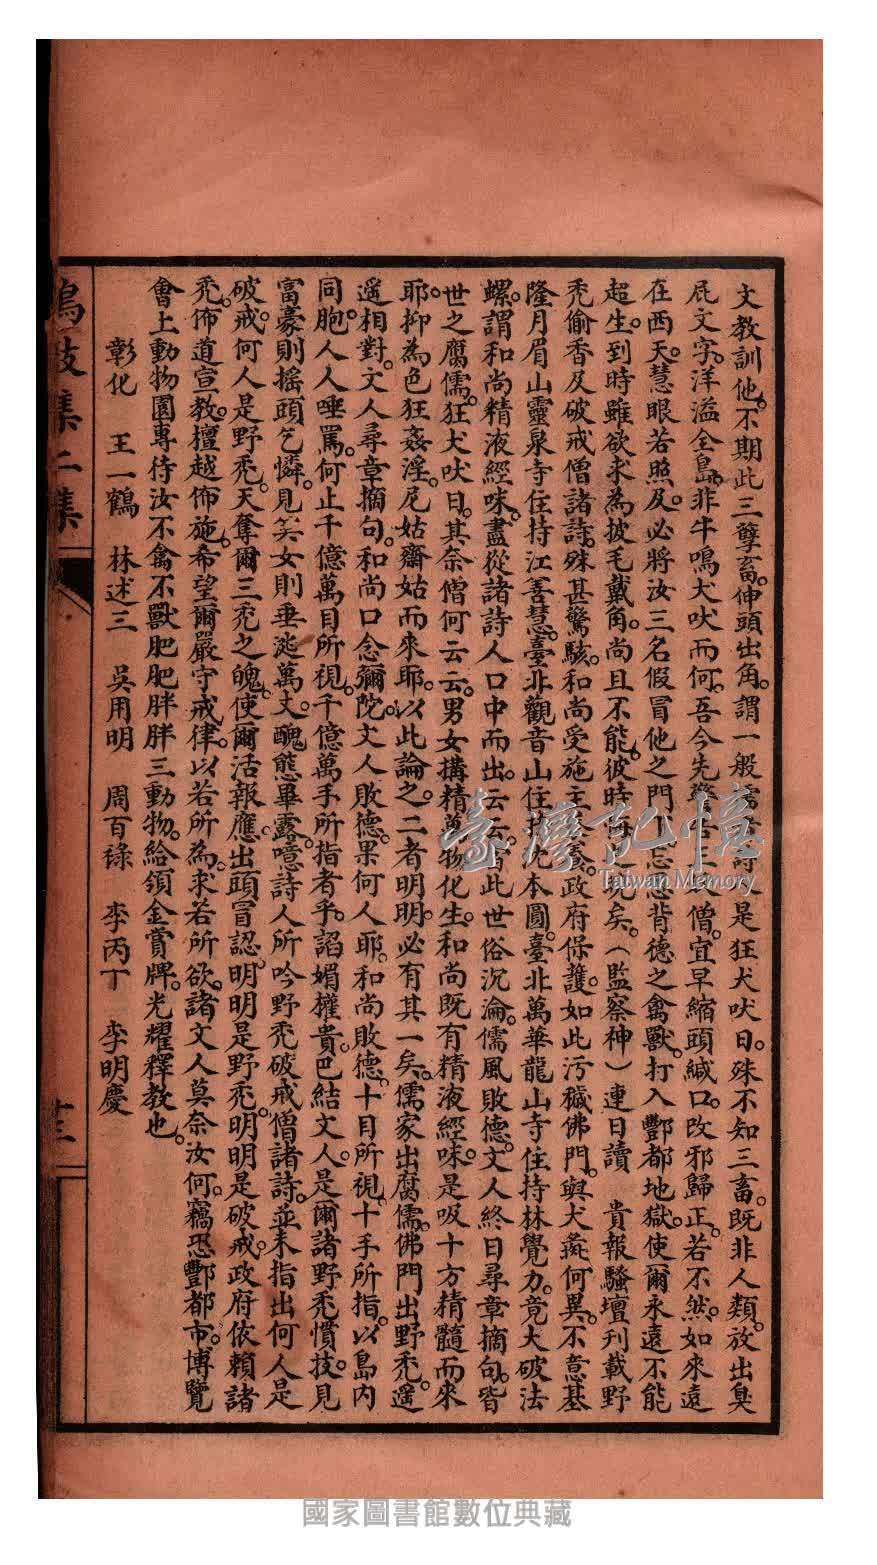 文教訓他。不期此三孽畜。伸頭出角。謂一般 是狂犬吠日。殊不知三畜。既非人類。放出臭
屁文字。洋溢全島。非牛鳴犬吠而何。吾今先 僧。宜早縮頭緘口。改邪歸正。若不然。如來遠
在西天。慧眼若照及。必將汝三名假冒他之門 背德之禽獸。打入酆都地獄。使爾永遠不能
超生。到時雖欲求為披毛戴角。尚且不能。彼時悔之 矣。(監察神)連日讀 貴報騷壇刊載野
禿偷香及破戒僧諸詩。殊甚驚駭。和尚受施主 養。政府保護。如此污穢佛門。與犬彘何異。不意基
隆月眉山靈泉寺住持江善慧。臺北觀音山住持沈本圓。臺北萬華龍山寺住持林覺力。竟大破法
螺。謂和尚精液經味。盡從諸詩人口中而出。云云。 此世俗沉淪。儒風敗德。文人終日尋章摘句。皆
世之腐儒。狂犬吠日。其奈僧何云云。男女搆精。萬物化生。和尚既有精液經味。是吸十方精髓而來
耶。抑為色狂姦淫。尼姑齋姑而來耶。以此論之。二者明明。必有其一矣。儒家出腐儒。佛門出野禿。遙
遙相對。文人尋章摘句。和尚口念彌陀。文人敗德。果何人耶。和尚敗德。十目所視。十手所指。以島內
同胞。人人唾罵。何止千億萬目所視。千億萬手所指者乎。諂媚權貴。巴結文人。是爾諸野禿慣技。見
富豪則搖頭乞憐。見美女則垂涎萬丈。醜態畢露。噫詩人所吟野禿破戒僧諸詩。並未指出何人是
破戒。何人是野禿。天奪爾三禿之魄。使爾活報應。出頭冒認。明明是野禿。明明是破戒。政府依賴諸
禿。佈道宣教。擅越佈施。希望爾嚴守戒律。以若所為。求若所欲。諸文人莫奈汝何。竊恐酆都市。博覽
會上動物園。專待汝不禽不獸肥肥胖胖三動物。給領金賞牌。光耀釋教也。
彰化 王一鶴 林述三 吳用明 周百祿 李丙丁 李明慶
鳴鼓集二集
臺灣記憶
Taiwan Memory
國家圖書館數位典藏